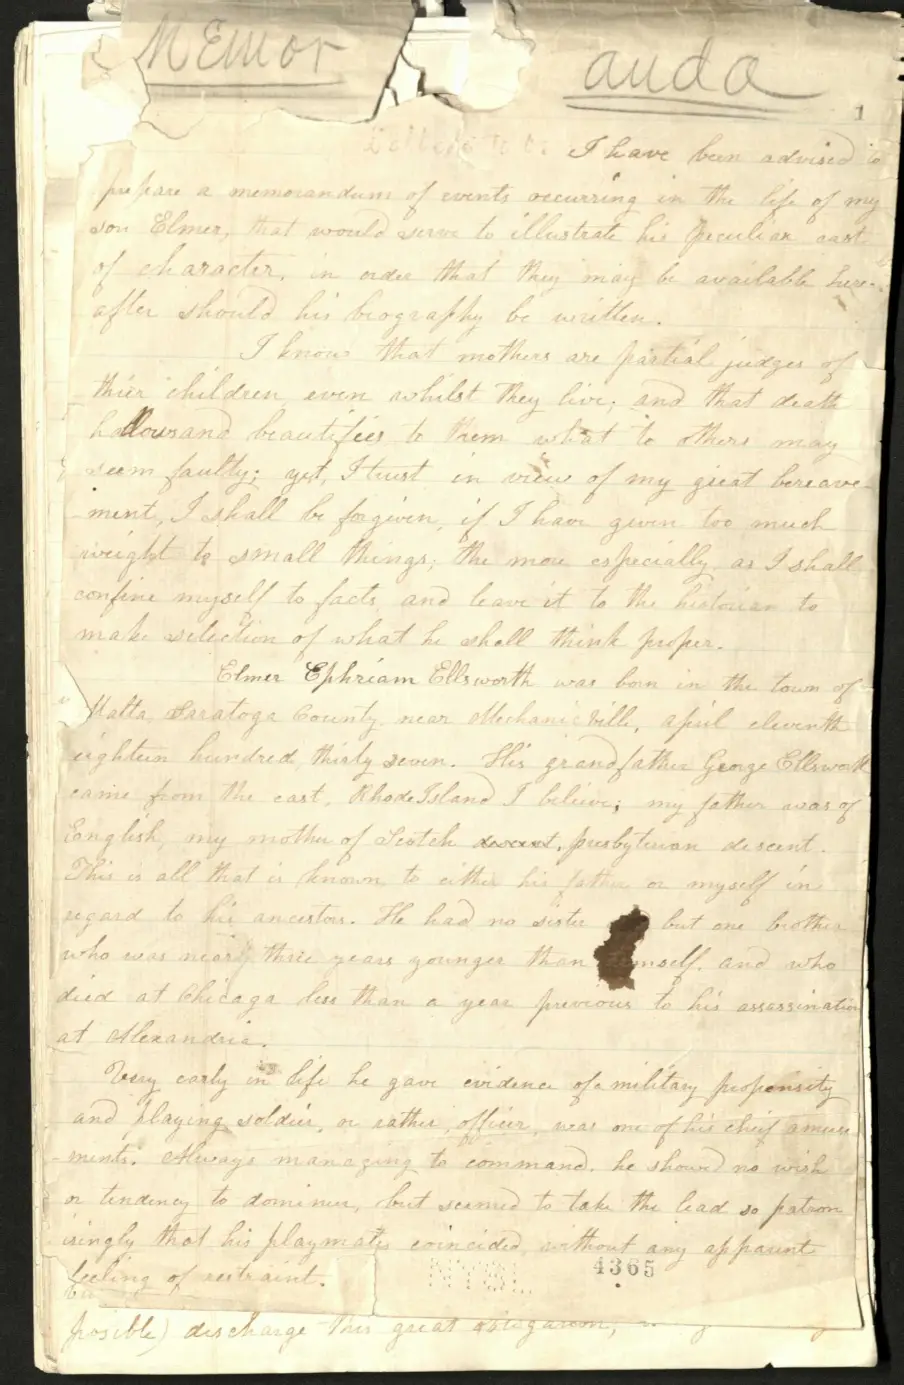 Memor anda
1
I have been advised to
prepare a memorandum of events occurring in the life of my
son Elmer, that would serve to illustrate his peculiar cast
of character, in order that they may be available here-
after should his biography be written.
I know that mothers are partial judges of
thier children even whilst they live; and that death
hallows and beautifies to them what to others may
seem faulty; yet, I trust in view of my great bereave-
ment, I shall be forgiven, if I have given too much
weight to small things; the more especially as I shall
confine myself to facts, and leave it to the historian to
make selection of what he shall think proper.
Elmer Ephriam Ellsworth was born in the town of
Malta, Saratoga County near Mechanicville, april eleventh
eighteen hundred thirty seven. His grandfather George Ellsworth
came from the east, Rhode Island I believe; my father was of
English, my mother of Scotch presbyterian descent.
This is all that is known to either his father or myself in
regard to his ancestors. He had no sister but one brother
who was near three years younger than himself, and who
died at Chicago less than a year previous to his assassination
at Alexandria.
Very early in life he gave evidence of a military propensity
and playing soldier, or rather, officer, was one of his cheif amuse-
ments. Always managing to command. he showed no wish
or tendency to domineer, but seemed to take the lead so patron
isingly that his playmates coincided, without any apparent
feeling of restraint.
NYSL
4365
posible) discharge this great